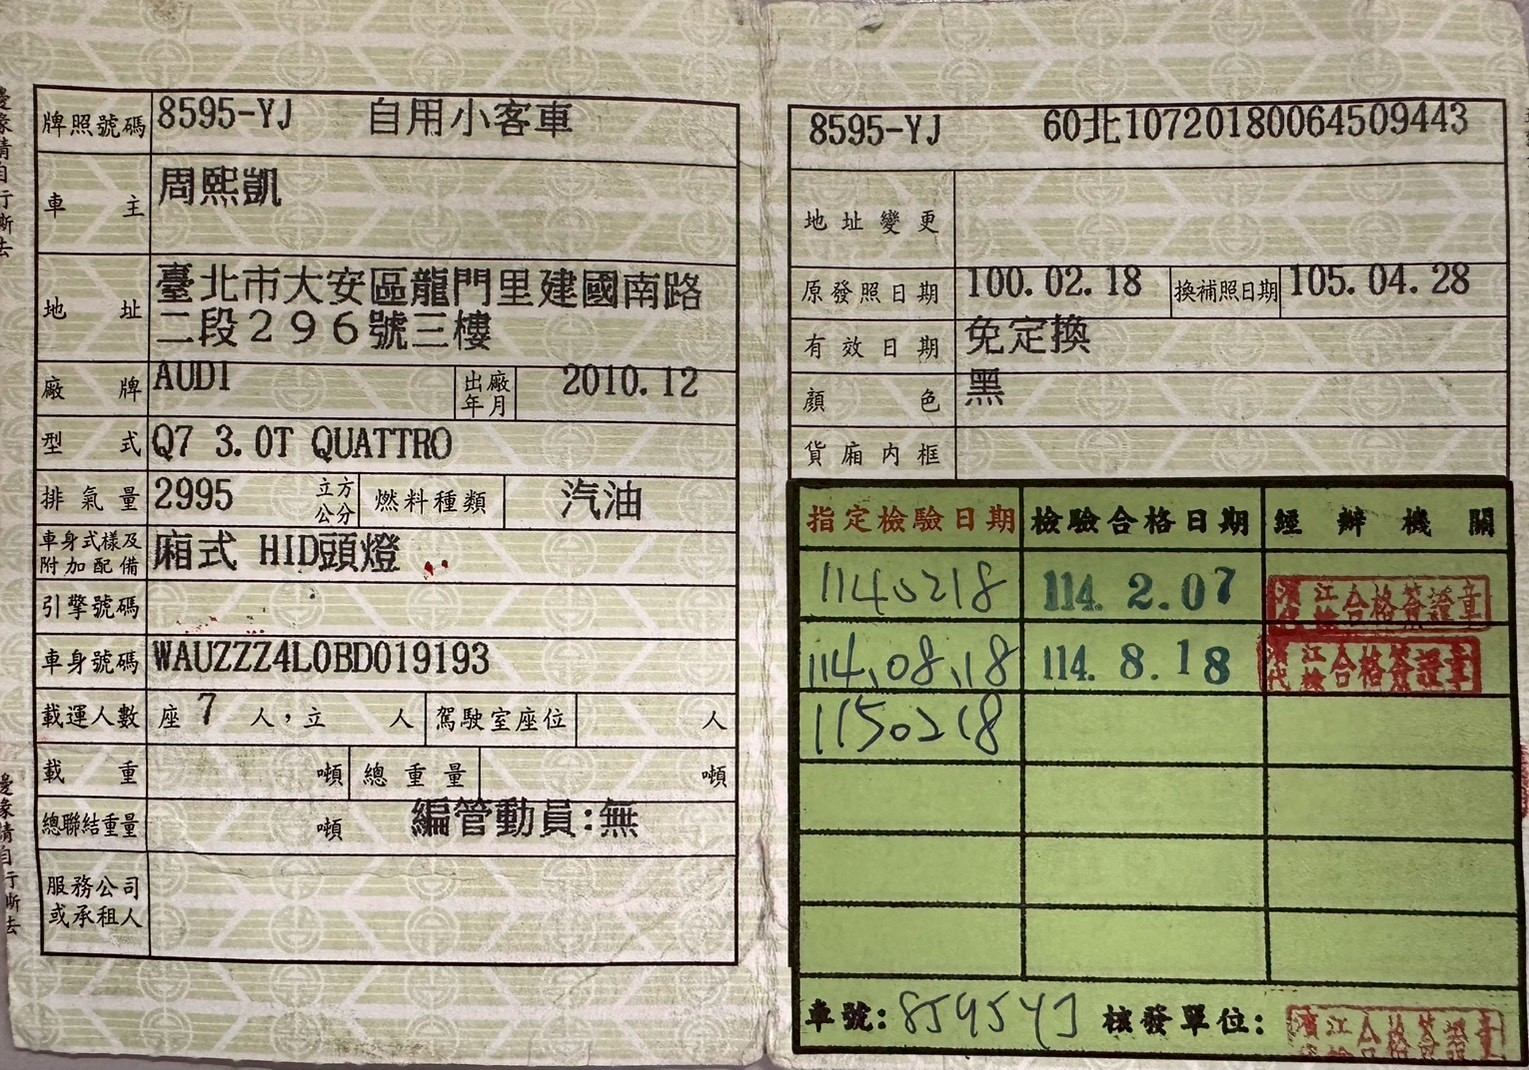 邊緣請自行撕去
牌照號碼 8595-YJ 自用小客車
車主 周熙凱
地址 臺北市大安區龍門里建國南路
二段296號三樓
廠牌 AUDI 出廠年月 2010.12
型式 Q7 3.0T QUATTRO
排氣量 2995 立方公分 燃料種類 汽油
車身式樣及附加配備 廂式 HID頭燈
引擎號碼
車身號碼 WAUZZZ4L0BD019193
載運人數 座 7 人，立 人 駕駛室座位 人
載重 噸 總重量 噸
總聯結重量 噸 編管動員:無
服務公司或承租人
邊緣請自行撕去
8595-YJ 60北10720180064509443
地址變更
原發照日期 100.02.18 換補照日期 105.04.28
有效日期 免定換
顏色 黑
貨廂內框
指定檢驗日期 檢驗合格日期 經辦機關
1140218 114.2.07 濱江代檢合格簽證章
114.08.18 114.8.18 濱江代檢合格簽證章
1150218
車號: 8595YJ 核發單位: 濱江 合格簽證章